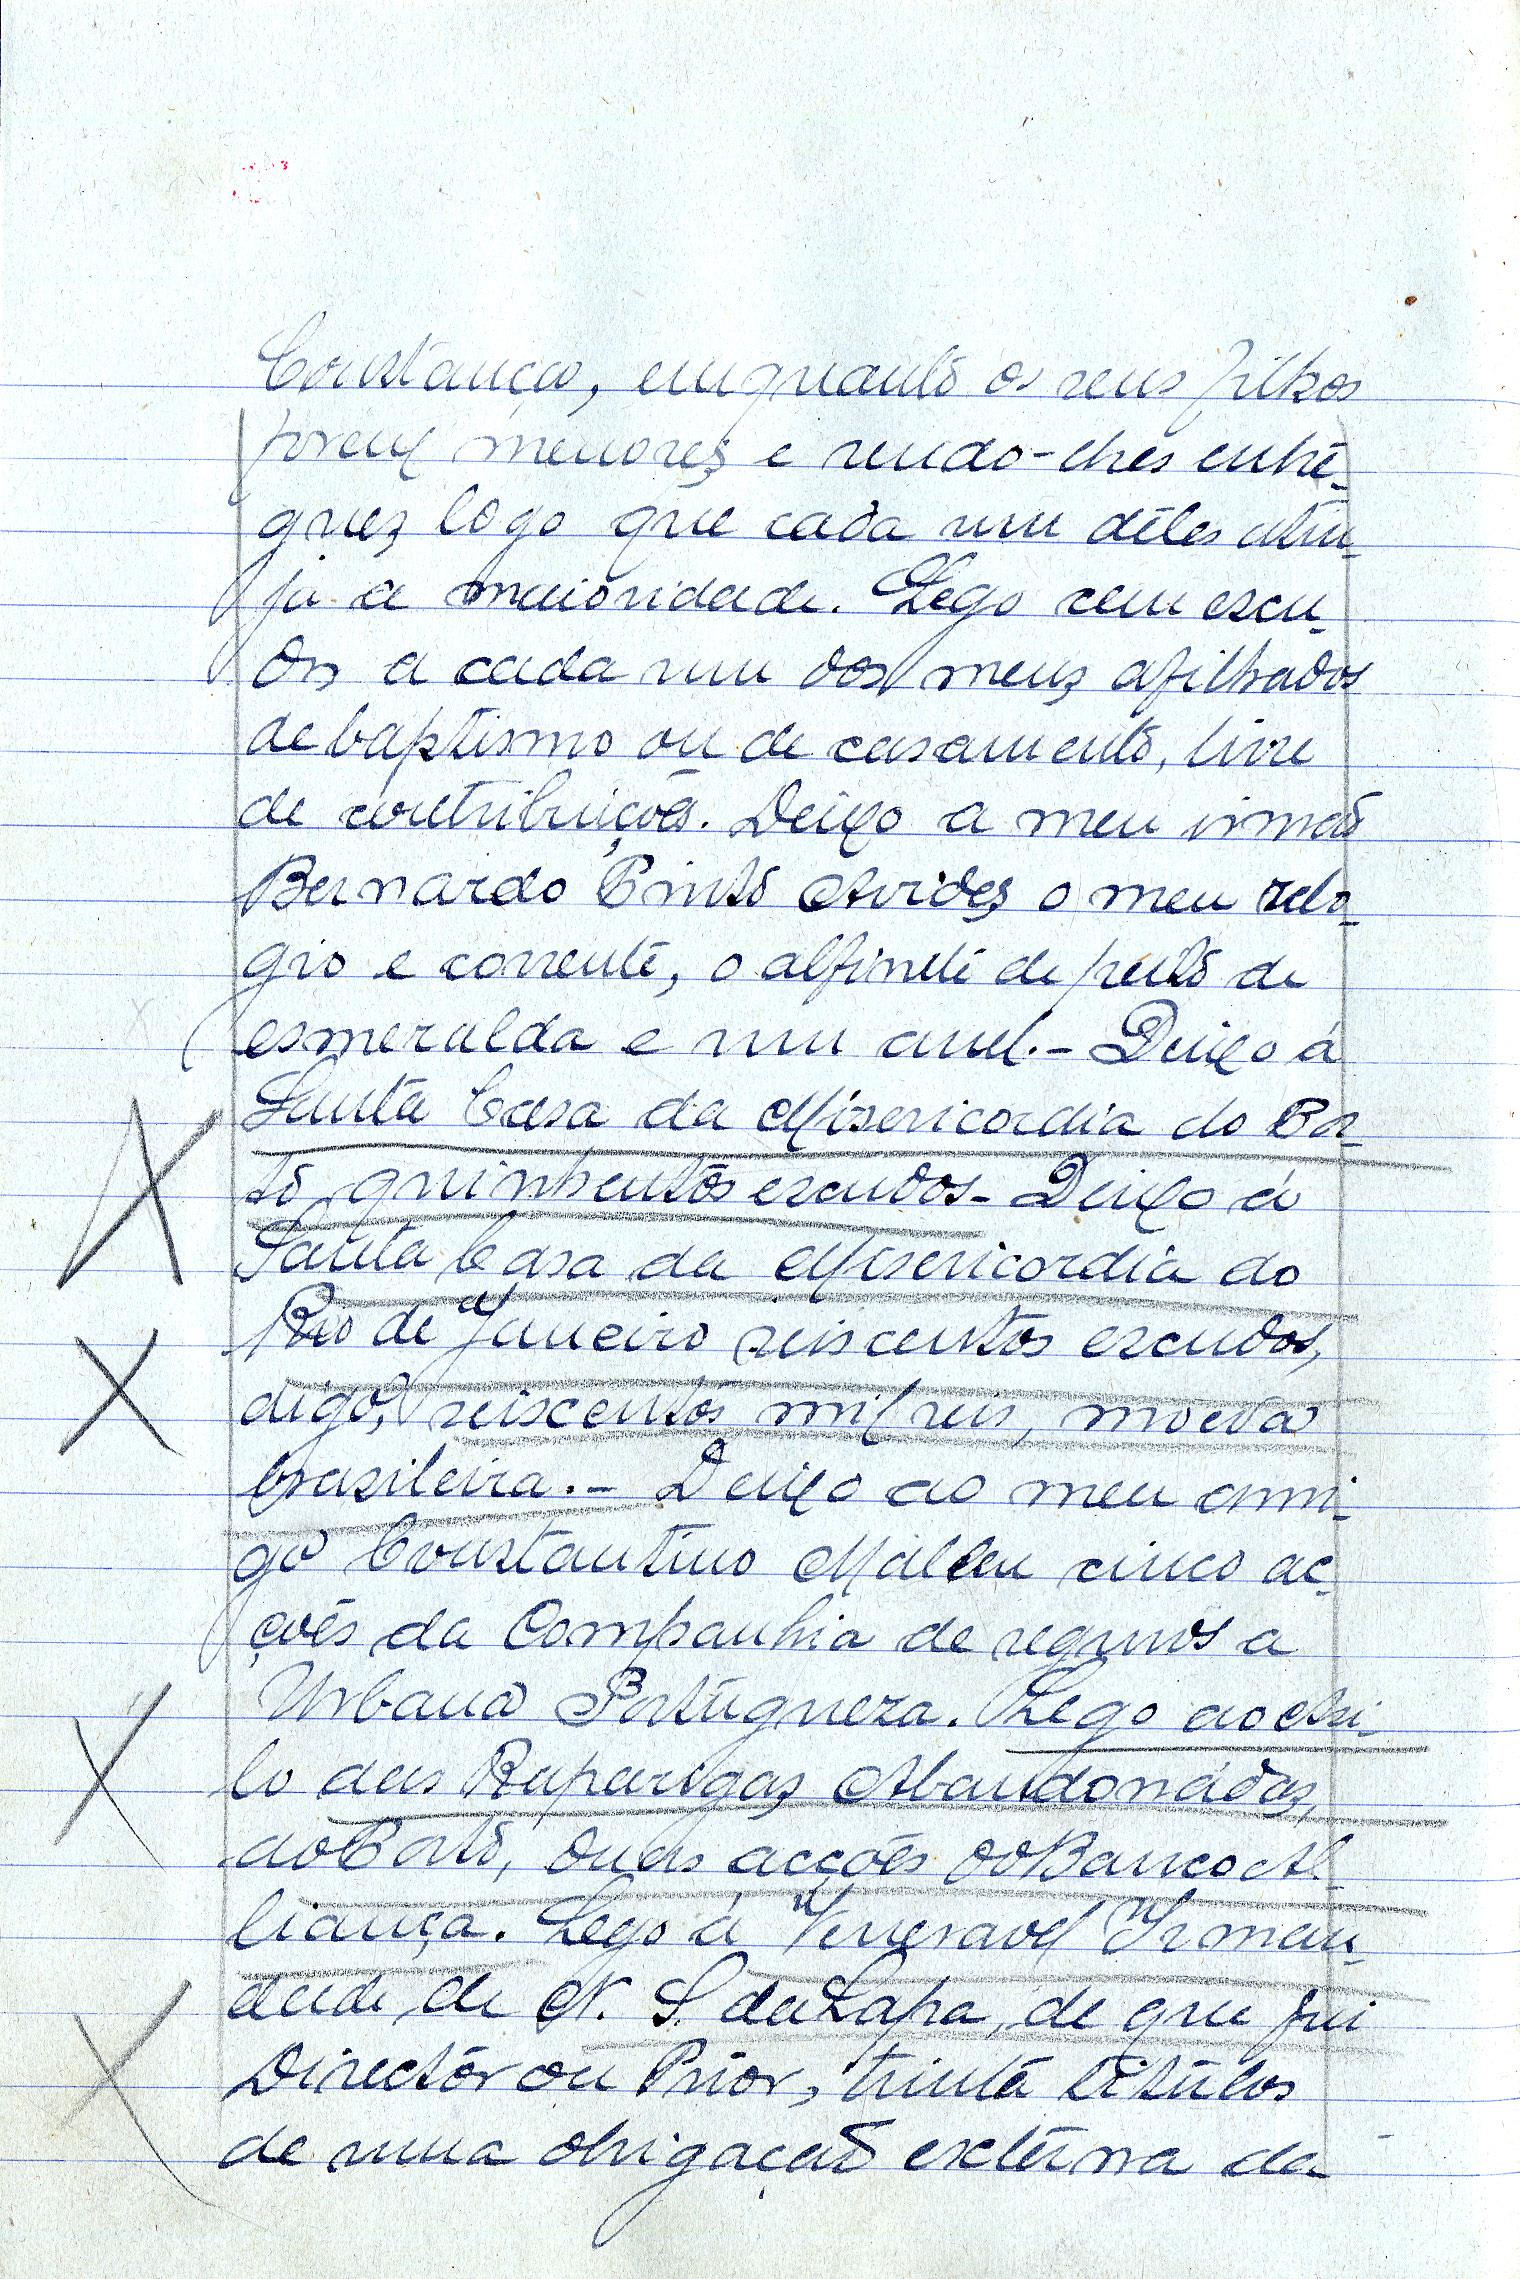 Constança, emquanto os seus filhos
forem menores e sendo-lhes entre-
gues logo que cada um dêles atin-
ja a maioridade. Lego cem escu-
dos a cada um dos meus afilhados
de baptismo ou de casamento, livre
de contribuições. Deixo a meu irmão
Bernardo Pinto Avides, o meu relo-
gio e corrente, o alfinete de peito de
esmeralda e um anel.- Deixo á
Santa Casa da Misericordia do Por-
to quinhentos escudos- Deixo á
Santa Casa da Misericordia do
Rio de Janeiro seiscentos escudos,
digo, seiscentos mil reis, moeda
brasileira.- Deixo ao meu ami-
go Constantino cinco ac-
ções da Companhia de seguros a
Urbana Portugueza. Lego ao Asi-
lo das Raparigas Abandonadas,
do Porto, duas acções do Banco Al-
liança. Lego á Veneravel Irman-
dade de N. S. da Lapa, de que fui
Director ou Prior, trinta titulos
de uma obrigação externa da